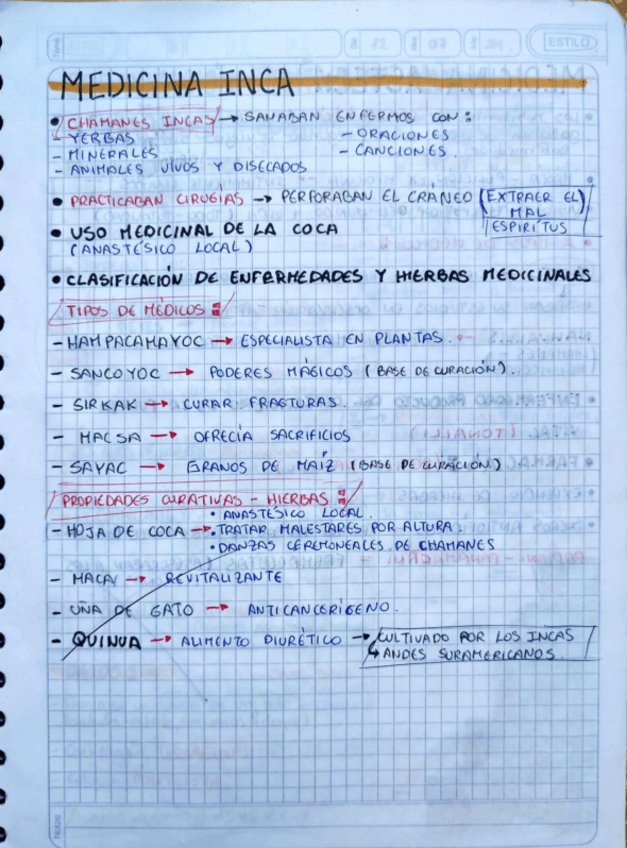 ESTILO
MEDICINA INCA
• CHAMANES INCAS → SANABAN ENFERMOS CON:
- YERBAS - ORACIONES
- MINERALES - CANCIONES.
- ANIMALES VIVOS Y DISECADOS
• PRACTICABAN CIRUGÍAS → PERFORABAN EL CRÁNEO (EXTRAER EL)
MAL
ESPIRÍTUS
• USO MEDICINAL DE LA COCA
(ANASTÉSICO LOCAL)
• CLASIFICACIÓN DE ENFERMEDADES Y HIERBAS MEDICINALES
TIPOS DE MÉDICOS:
- HAMPACAMAYOC → ESPECIALISTA EN PLANTAS.
- SANCOYOC → PODERES MÁGICOS (BASE DE CURACIÓN).
- SIRKAK → CURAR FRACTURAS.
- MACSA → OFRECÍA SACRIFICIOS
- SAYAC → GRANOS DE MAÍZ (BASE DE CURACIÓN)
PROPIEDADES CURATIVAS - HIERBAS:
• ANASTÉSICO LOCAL.
- HOJA DE COCA → • TRATAR MALESTARES POR ALTURA.
• DANZAS CEREMONEALES DE CHAMANES
- MACA → REVITALIZANTE
- UÑA DE GATO → ANTICANCERÍGENO.
- QUINUA → ALIMENTO DIURÉTICO → CULTIVADO POR LOS INCAS
↳ ANDES SURAMERICANOS.
Notes